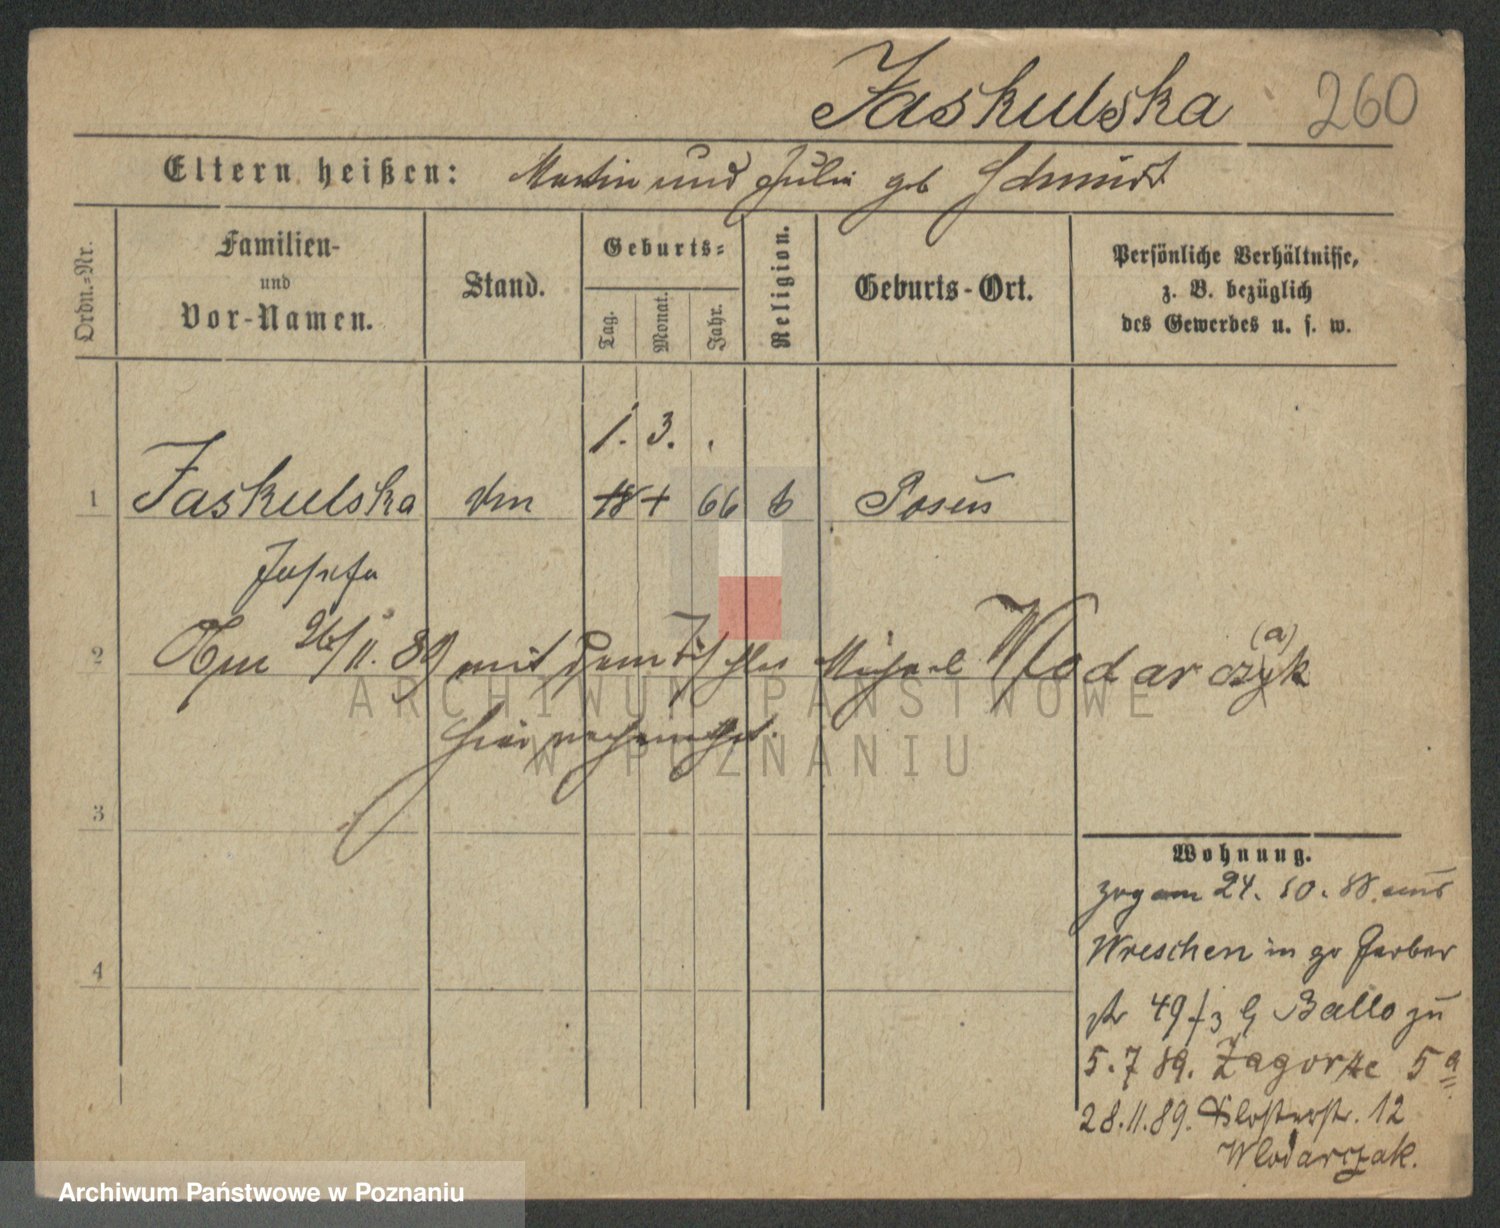 Jaskulska 260
Eltern heißen: Martin und Julie geb Schmidt
Ordn.-Nr.
Familien-
und
Vor-Namen.
Stand.
Geburts-
Tag.
Monat.
Jahr.
Religion.
Geburts-Ort.
Persönliche Verhältnisse,
z. B. bezüglich
des Gewerbes u. s. w.
1. 3.
1 Jaskulska 18 66 Posen
Josefa
2 Am 26/11. 89 mit dem Tischler Michael Wlodarczyk
(a)
hier verheirathet.
3
4
Wohnung.
zog am 24. 10. 88. aus
Wreschen in gr Gerber
str 49 Ballo zu
5. 7 89. Zagorze 5 a
28. 11. 89. Klosterstr. 12
Wlodarczak.
ARCHIWUM PAŃSTWOWE
W POZNANIU
Archiwum Państwowe w Poznaniu